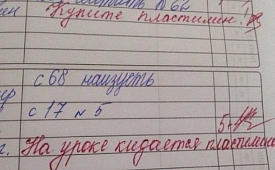 № 62
Купите пластилин.
с 68 наизусть
с 17 № 5
5
г. На уроке кидается пластилин